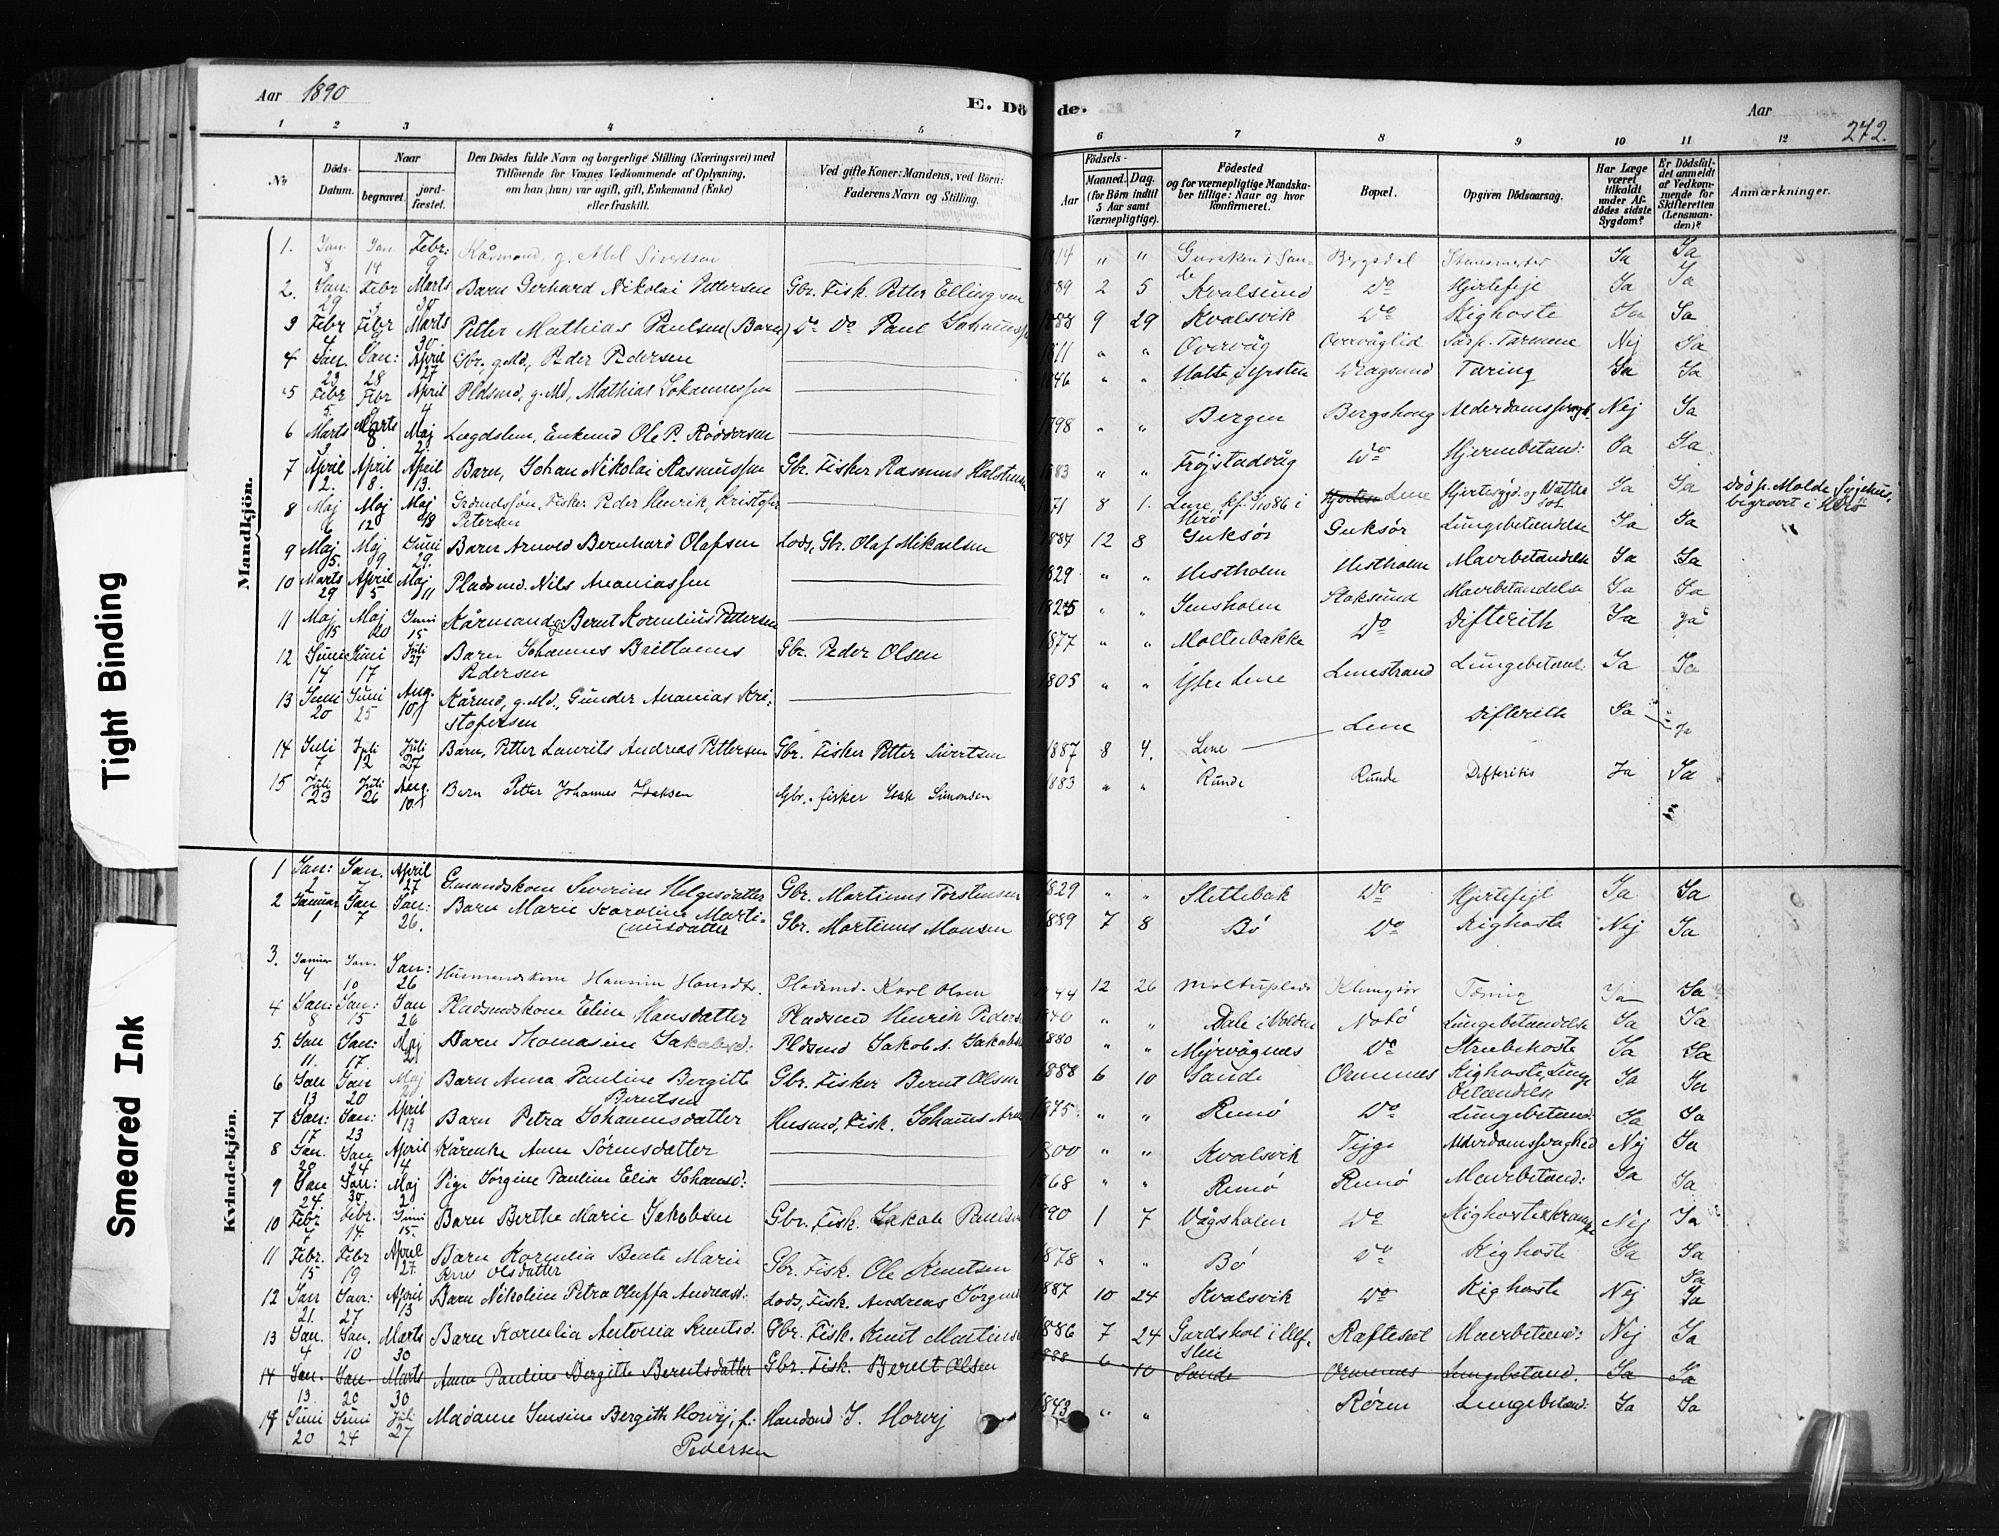 Aar 1890
E. Dö de.
Aar
272.
1 2 3 4 5 6 7 8 9 10 11 12
No
Döds-Datum.
Naar
begravet.
jordfæstet.
Den Dödes fulde Navn og borgerlige Stilling (Næringsvei) med
Tilföiende for Voxnes Vedkommende af Oplysning,
om han (hun) var ugift, gift, Enkemand (Enke)
eller fraskilt.
Ved gifte Koner: Mandens, ved Börn:
Faderens Navn og Stilling.
Födsels-
Aar
Maaned.
Dag.
(for Börn indtil
5 Aar samt
Værnepligtige).
Födested
og for værnepligtige Mandska-
ber tillige: Naar og hvor
konfirmeret.
Bopæl.
Opgiven Dödsaarsag.
Har Læge
været
tilkaldt
under Af-
dödes sidste
Sygdom?
Er Dödsfal-
det anmeldt
af Vedkom-
mende for
Skifteretten
(Lensman-
den)?
Anmærkninger.
Mandkjön.
1. Jan: 8 Jan 14 Febr: 9 Kårmand, g. Abel Sivertsen 1814 " " Gursken i Sande Bergsdal Ja Ja
2. Jan: 29 Febr 3 Marts 30 Barn Gerhard Nikolai Pettersen Gbr. Fisk. Petter Ellingsen 1889 2 5 Kvalsund Do Hjertefejl Ja Ja
3 Febr 4 Febr Marts 30. Petter Mathias Paulsen (Barn) Do Do Paul Johannessen 1888 9 29 Kvalsvik Do Kighoste Ja Ja
4 Jan: 23 Jan: 28 April 27 Gbr. g. Md, Peder Pedersen 1811 " " Overvåg Overvåglid Nej Ja
5 Febr 5. Febr April 4 Pldsmd, g. Md, Mathias Johannessen 1846 " " Dragsund Tæring Ja Ja
6 Marts 3 Marts 8 Maj 2 Lægdslem, Enkemd Ole P. Röddersen 1798 " " Bergen Bergshoug Alderdomssvagh. Nej Ja
7 April 2. April 8. April 13. Barn, Johan Nikolai Rasmussen Gbr. Fisker Rasmus Halstensen 1883 " " Fröjstadvåg Do Hjernebetænd: Ja Ja
8 Maj 6 Maj 12 Maj 18 Grdmndssön, Fisker Peder Henrik Kristofer
Petersen 1871 8 1. Lene, kf. 3/10 86 i
Herö Lene Hjertesygd. og Vatter
sot Ja Ja Död p. Molde Sygehus,
begravet i Herö
9 Maj 5. Maj 9 Juni 29. Barn Arnold Bernhard Olafsen Lods, Gbr. Olaf Mikaelsen 1884 12 8 Guksör Guksör Lungebetændelse Ja Ja
10 Marts 29 April 5 Maj 11 Pladsmd. Nils Ananiassen 1829 " " Hestholm Hestholm Mavebetændelse Ja Ja
11 Maj 15 Maj 20 Juni 15 Kårmand g. Bernt Kornelius Pettersen 1825 " " Jensholm Stoksund Mavebetændelse Ja Ja
12 Juni 14 Juni 17 Juli 27 Barn Johannes
Pedersen Gbr. Peder Olsen 1877 " " Moltebakke Do Difterith Ja ja
13 Juni 20 Juni 25 Aug. 10 Kårmd, g. Md., Gunder Ananias Kri-
stofersen 1805 " " Ytre Lene Lenestrand Lungebetænd. Ja Ja
14 Juli 7 Juli 12 Juli 27 Barn, Petter Laurits Andreas Pettersen Gbr. Fisker Petter Sivertsen 1887 8 4. Lene Lene Difterith Ja Ja
15 Juli 23 Juli 26 Aug. 10 Barn Petter Johannes Isaksen Gbr. fisker Isak Simonsen 1883 " " Runde Runde Difteritis Ja Ja
Kvindekjön.
1 Jan: 2 Jan. 7 April 27 Gmandskone Severine Helgesdatter Gbr. Martinus Torstensen 1829 " " Slettebak Do Hjertefejl Ja Ja
2 Januar 1 Jan 7 Jan: 26. Barn Marie Karoline Marti-
nusdatter Gbr. Martinus Monsen 1889 7 8 Bö Do Kighoste Nej Ja
3. Januar 4 Jan. 10 Jan: 26 Husmandskone Hansine Hansdtr. Pladsmd. Karl Olsen 1844 12 26 Moltuplads Klungsör Tæring Ja Ja
4 Jan: 8 Jan: 15 Jan 26 Pladsmdskone Eline Hansdatter Pladsmd Henrik Peders 1840 " " Dale i Volden Notö Lungebetændelse Ja Ja
5. Jan 11. Jan: 17. Maj 2 Barn Thomasine Jakobsd: Pldsmd Jakob A. Jakobs 1880 " " Myrvågnes Do Strubehoste Ja Ja
6 Jan 13 Jan 20 Maj Barn Anna Pauline Bergitte
Berntsen Gbr. Fisker Bernt Olsen 1888 6 10 Sande Ormenes Kighoste, Lunge
betændelse Ja Ja
7 Jan: 17 Jan: 23 April 13 Barn Petra Johannesdatter Husmd, Fisk. Johannes 1875 " " Remö Do Lungebetænd: Ja Ja
8 Jan. 20 Jan 24 April 4 Kårenke Anne Sörensdatter 1800 " " Kvalsvik Tejge Alderdomssvaghed Nej Ja
9 Jan 24. Jan: 30. Maj 2 Pige Jörgine Pauline Elia Johansd: 1868 " " Remö Remö Mavebetænd: Ja Ja
10 Febr 7 Febr. 14. Juni 15. Barn Berthe Marie Jakobsen Gbr. Fisk. Jakob Paulsen 1890 1 7 Vågsholm Do Kighoste & krampe Nej Ja
11 Febr. 15 Febr 19 April 27. Barn Kornelia Beate Marie
Olsdatter Gbr. Fisk. Ole Knutsen 1878 " " Bö Do Kighoste Ja Ja
12 Jan 21. Jan: 27 April 13 Barn Nikoline Petra Oluffa Andreasd. Lods, Fisk. Andreas Jörgens 1887 10 24 Kvalsvik Do Kighoste Nej Ja
13 Jan. 4 Jan. 10 Marts 30 Barn Kornelia Antonia Knutsd. Gbr. Fisk. Knut Martins 1886 7 24 Gardshol i Ulf-
sten Ræftesæl Mavebetænd: Nej Ja
14 Jan. 13 Jan 20 Marts 30 Anne Pauline Bergitte Berntsdatter Gbr. Fisk. Bernt Olsen 1888 6 10 Sande Ormenes Lungebetænd. Ja Ja
14 Juni 20 Juni 24 Juli 27 Madame Jensine Bergith Horvej, f:
Pedersen Handsmd J. Horvej 1843 " " Rören Lungebetænd: Ja Ja
Tight Binding
Smeared Ink